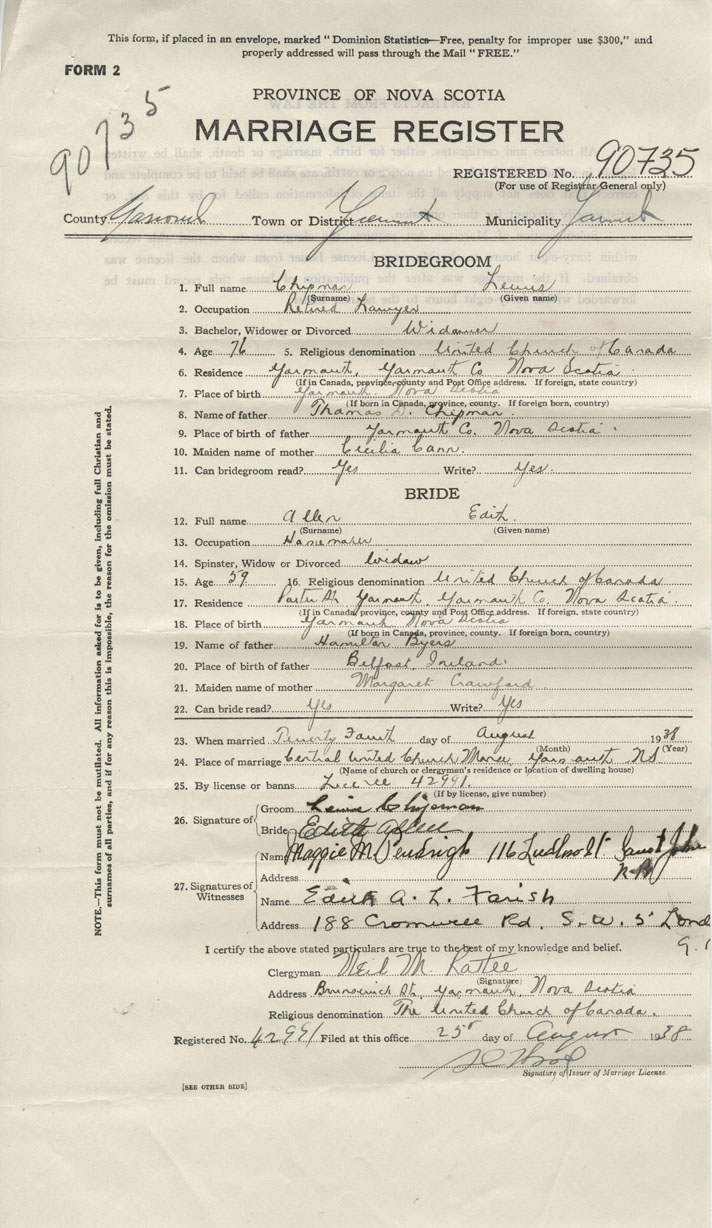 This form, if placed in an envelope, marked "Dominion Statistics—Free, penalty for improper use $300," and
properly addressed will pass through the Mail "FREE."
FORM 2
90735
PROVINCE OF NOVA SCOTIA
MARRIAGE REGISTER
REGISTERED No. 90735
(For use of Registrar General only)
County Town or District Yarmouth Municipality Yarmouth
BRIDEGROOM
1. Full name Chipman Lewis
(Surname) (Given name)
2. Occupation Retired Lawyer
3. Bachelor, Widower or Divorced Widower
4. Age 76 5. Religious denomination United Church of Canada
6. Residence Yarmouth, Yarmouth Co Nova Scotia
(If in Canada, province, county and Post Office address. If foreign, state country)
7. Place of birth Yarmouth Nova Scotia
(If born in Canada, province, county. If foreign born, country)
8. Name of father Thomas D. Chipman
9. Place of birth of father Yarmouth Co. Nova Scotia
10. Maiden name of mother Cecilia Cann
11. Can bridegroom read? Yes Write? Yes.
BRIDE
12. Full name Allen Edith
(Surname) (Given name)
13. Occupation Homemaker
14. Spinster, Widow or Divorced Widow
15. Age 59 16. Religious denomination United Church of Canada
17. Residence Porter St. Yarmouth, Yarmouth Co. Nova Scotia.
(If in Canada, province, county and Post Office address. If foreign, state country)
18. Place of birth Yarmouth Nova Scotia
(If born in Canada, province, county. If foreign born, country)
19. Name of father Hamilton Byers
20. Place of birth of father Belfast, Ireland.
21. Maiden name of mother Margaret Crawford
22. Can bride read? Yes Write? Yes
23. When married Twenty Fourth day of August 1938
(Month) (Year)
24. Place of marriage Central United Church Manse Yarmouth NS
(Name of church or clergyman's residence or location of dwelling house)
25. By license or banns License 42991.
(If by license, give number)
26. Signature of Groom Lewis Chipman
Bride Edith Allen
27. Signatures of Witnesses
Name Maggie M. 116 Ludlow St Saint John
Address N.B.
Name Edith A. L. Farish
Address 188 Cromwell Rd. S.W. 5 Lond
I certify the above stated particulars are true to the best of my knowledge and belief.
Clergyman Neil M. Rattee
(Signature)
Address Brunswick St., Yarmouth, Nova Scotia
Religious denomination The United Church of Canada.
Registered No. 42991 Filed at this office 25 day of August 1938
Signature of Issuer of Marriage License.
[SEE OTHER SIDE]
NOTE.—This form must not be mutilated. All information asked for is to be given, including full Christian and
surnames of all parties, and if for any reason this is impossible, the reason for the omission must be stated.